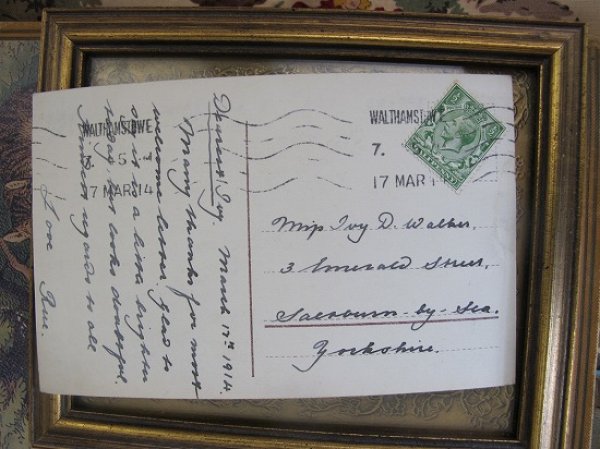 WALTHAMSTOWE
7. 5 -
17 MAR 14
WALTHAMSTOWE
7.
17 MAR 14
Dearest Ivy. March 17th 1914.
Many thanks for most
welcome letter. glad to
see it is a little brighter
today, but looks doubtful.
Kindest regards to all
Love
Miss Ivy D. Walker,
3 Emerald Street,
Saltburn-by-Sea.
Yorkshire.